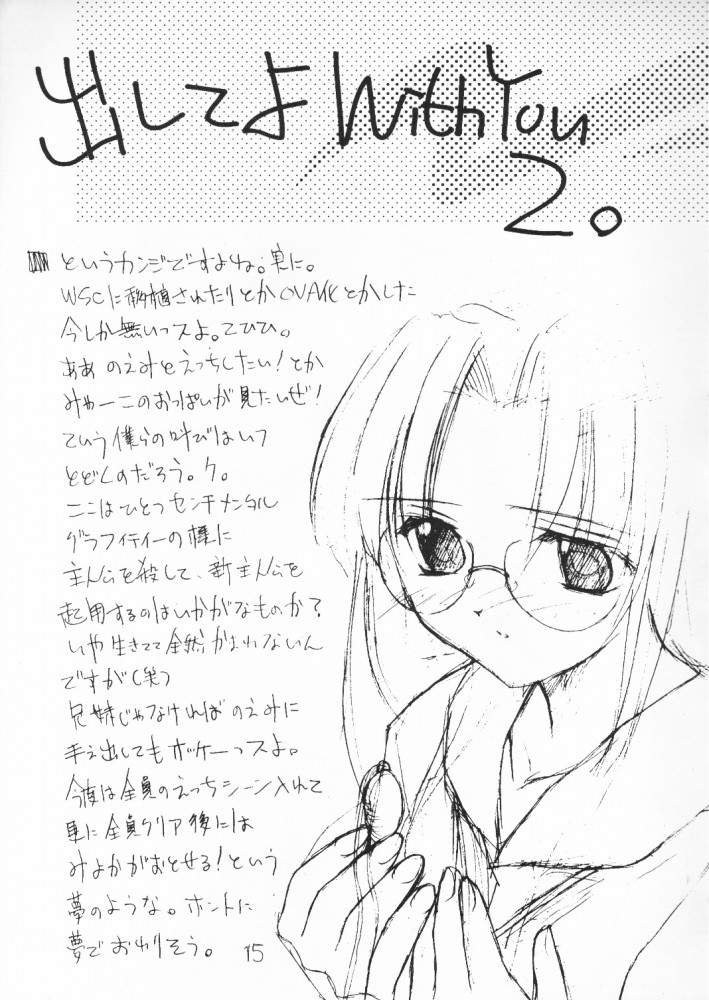 出してよ With You
2。
というカンジですよね。実に。
WSCに移植されたりとかOVA化とかした
今しか無いっスよ。てひひ。
ああ のえみとえっちしたい!とか
みゃーこのおっぱいが見たいぜ!
ていう僕らの叫びはいつ
とどくのだろう。ク。
ここはひとつセンチメンタル
グラフィティーの様に
主人公を殺して、新主人公を
起用するのはいかがなものか?
いや生きてて全然かまわないん
ですが(笑)
兄妹じゃなければのえみに
手え出してもオッケーっスよ。
今度は全員のえっちシーン入れて
更に全員クリア後には
みよかがおとせる!という
夢のような。ホントに
夢でおわりそう。
15